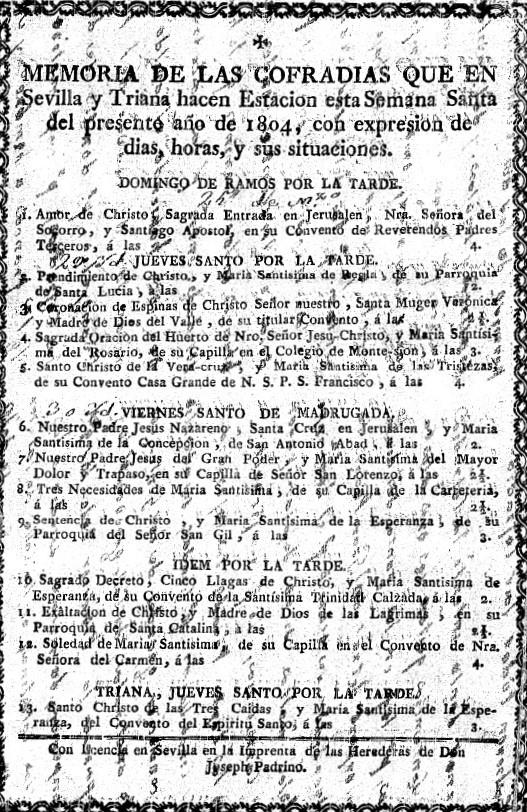 ✠
MEMORIA DE LAS COFRADIAS QUE EN
Sevilla y Triana hacen Estacion esta Semana Santa
del presente año de 1804, con expresion de
dias, horas, y sus situaciones.
DOMINGO DE RAMOS POR LA TARDE.
1. Amor de Christo, Sagrada Entrada en Jerusalen, Nra. Señora del
Socorro, y Santiago Apostol, en su Convento de Reverendos Padres
Terceros, á las 4.
JUEVES SANTO POR LA TARDE.
2. Prendimiento de Christo, y Maria Santisima de Regla, de su Parroquia
de Santa Lucia, á las 2.
3. Coronacion de Espinas de Christo Señor nuestro, Santa Muger Veronica
y Madre de Dios del Valle, de su titular Convento, á las 2½.
4. Sagrada Oracion del Huerto de Nro. Señor Jesu-Christo, y Maria Santisi-
ma del Rosario, de su Capilla en el Colegio de Monte-sion, á las 3.
5. Santo Christo de la Vera-cruz, y Maria Santisima de las Tristezas,
de su Convento Casa Grande de N. S. P. S. Francisco, á las 4.
VIERNES SANTO DE MADRUGADA.
6. Nuestro Padre Jesus Nazareno, Santa Cruz en Jerusalen, y Maria
Santisima de la Concepcion, de San Antonio Abad, á las 2.
7. Nuestro Padre Jesus del Gran Poder, y Maria Santisima del Mayor
Dolor y Trapaso, en su Capilla de Señor San Lorenzo, á las 2½.
8. Tres Necesidades de Maria Santisima, de su Capilla de la Carreteria,
á las 2½.
9. Sentencia de Christo, y Maria Santisima de la Esperanza, de su
Parroquia del Señor San Gil, á las 3.
IDEM POR LA TARDE.
10. Sagrado Decreto, Cinco Llagas de Christo, y Maria Santisima de
Esperanza, de su Convento de la Santisima Trinidad Calzada, á las 2.
11. Exaltacion de Christo, y Madre de Dios de las Lagrimas, en su
Parroquia de Santa Catalina, á las 2½.
12. Soledad de Maria Santisima, de su Capilla en el Convento de Nra.
Señora del Carmen, á las 4.
TRIANA, JUEVES SANTO POR LA TARDE.
13. Santo Christo de las Tres Caidas, y Maria Santisima de la Espe-
ranza, del Convento del Espiritu Santo, á las 3.
Con licencia en Sevilla en la Imprenta de las Herederas de Don
Joseph Padrino.